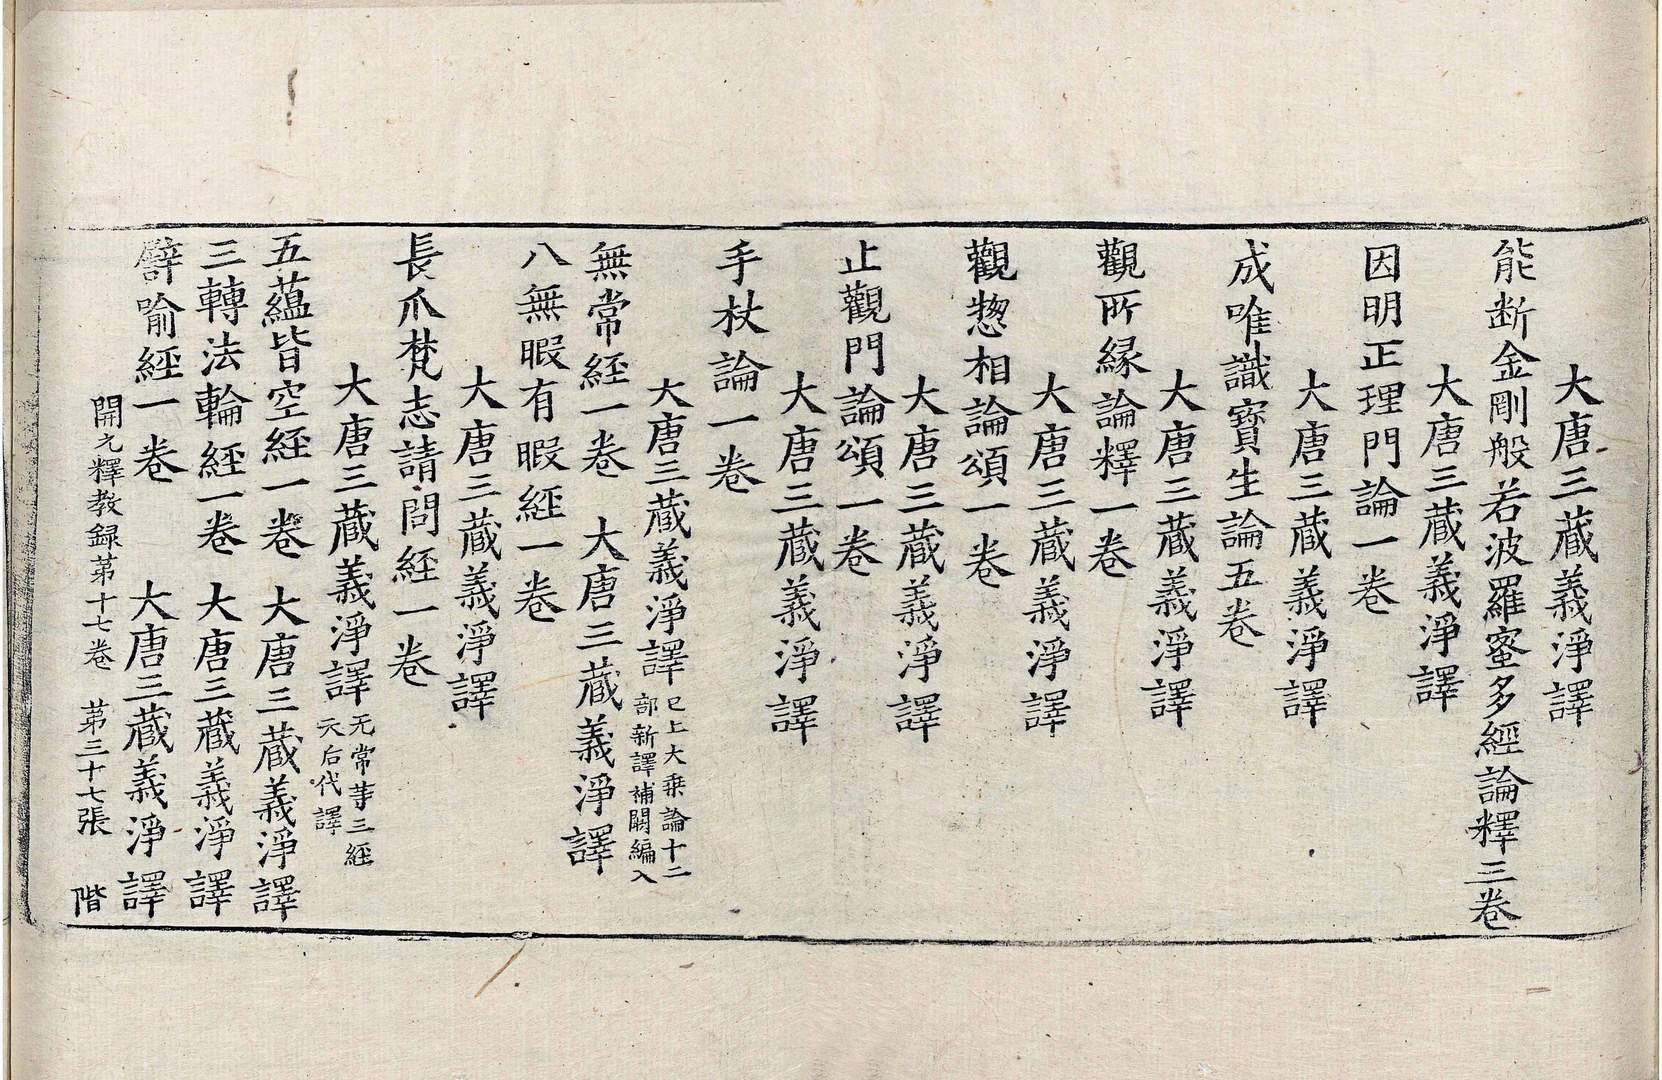 大唐三藏義淨譯
能断金剛般若波羅蜜多經論釋三卷
大唐三藏義淨譯
因明正理門論一卷
大唐三藏義淨譯
成唯識寶生論五卷
大唐三藏義淨譯
觀所縁論釋一卷
大唐三藏義淨譯
觀惣相論頌一卷
大唐三藏義淨譯
止觀門論頌一卷
大唐三藏義淨譯
手杖論一卷
大唐三藏義淨譯 已上大乗論十二
部新譯補闕編入
無常經一卷 大唐三藏義淨譯
八無暇有暇經一卷
大唐三藏義淨譯
長爪梵志請問經一卷
大唐三藏義淨譯 无常等三經
天后代譯
五蘊皆空經一卷 大唐三藏義淨譯
三轉法輪經一卷 大唐三藏義淨譯
譬喻經一卷 大唐三藏義淨譯
開元釋教録第十七卷 第三十七張 階